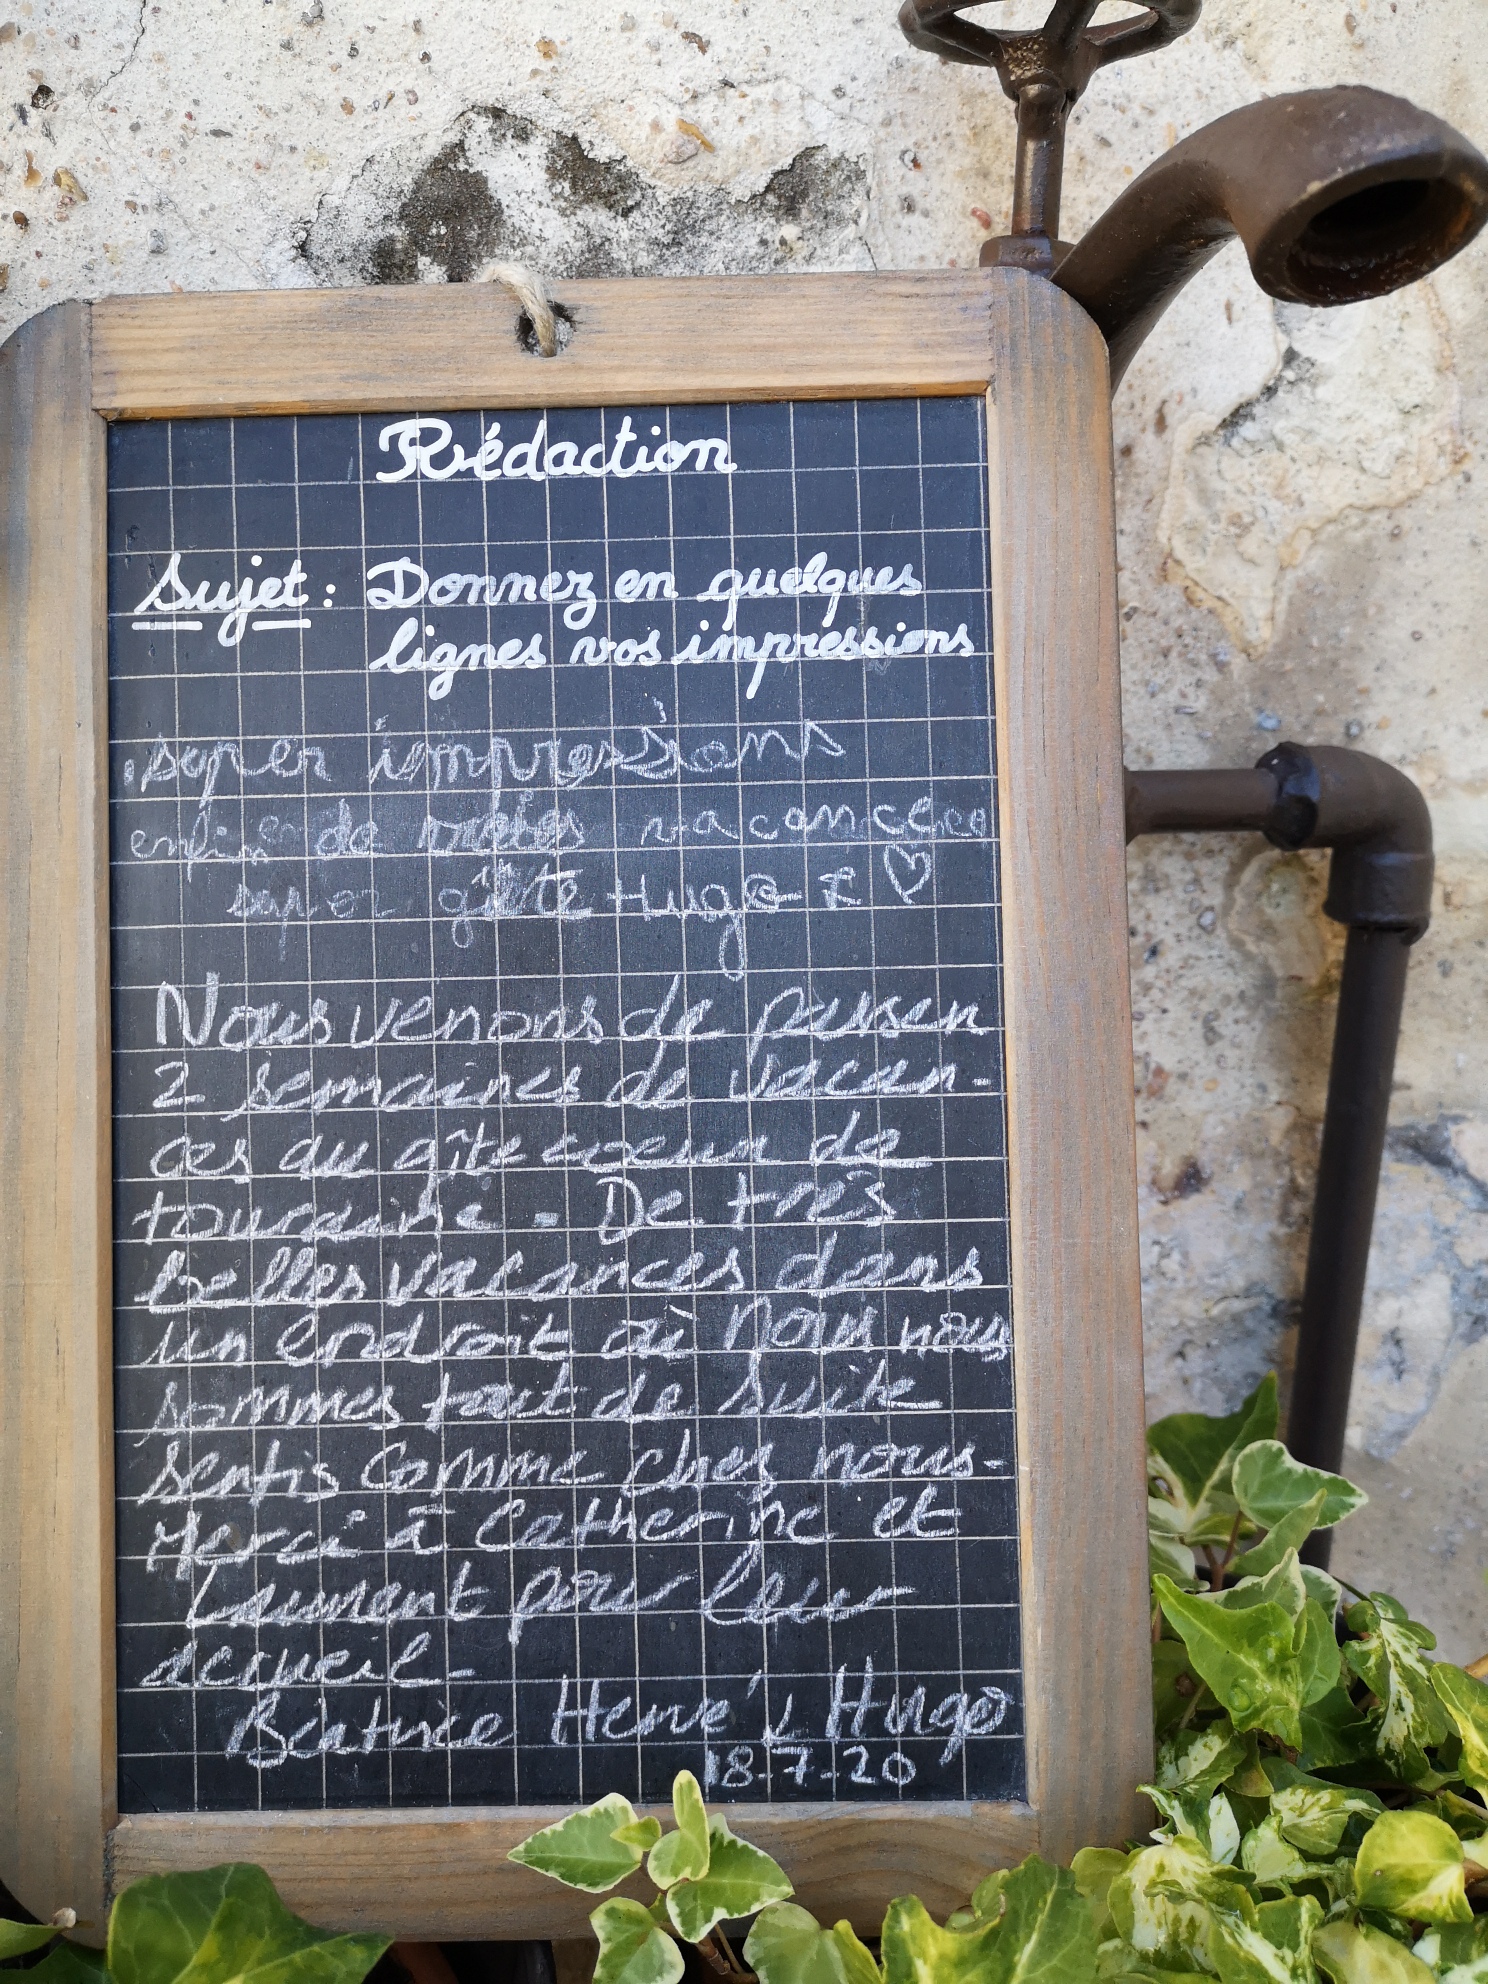 Rédaction
Sujet : Donnez en quelques
lignes vos impressions
super impressions
enfin de vacances
super gîte Hugo
Nous venons de passer
2 semaines de vacan-
ces au gîte coeur de
touraine. De très
belles vacances dans
un endroit où nous nous
sommes tout de suite
sentis comme chez nous.
Merci à Catherine et
Laurent pour leur
accueil.
Béatrice Hervé & Hugo
18-7-20